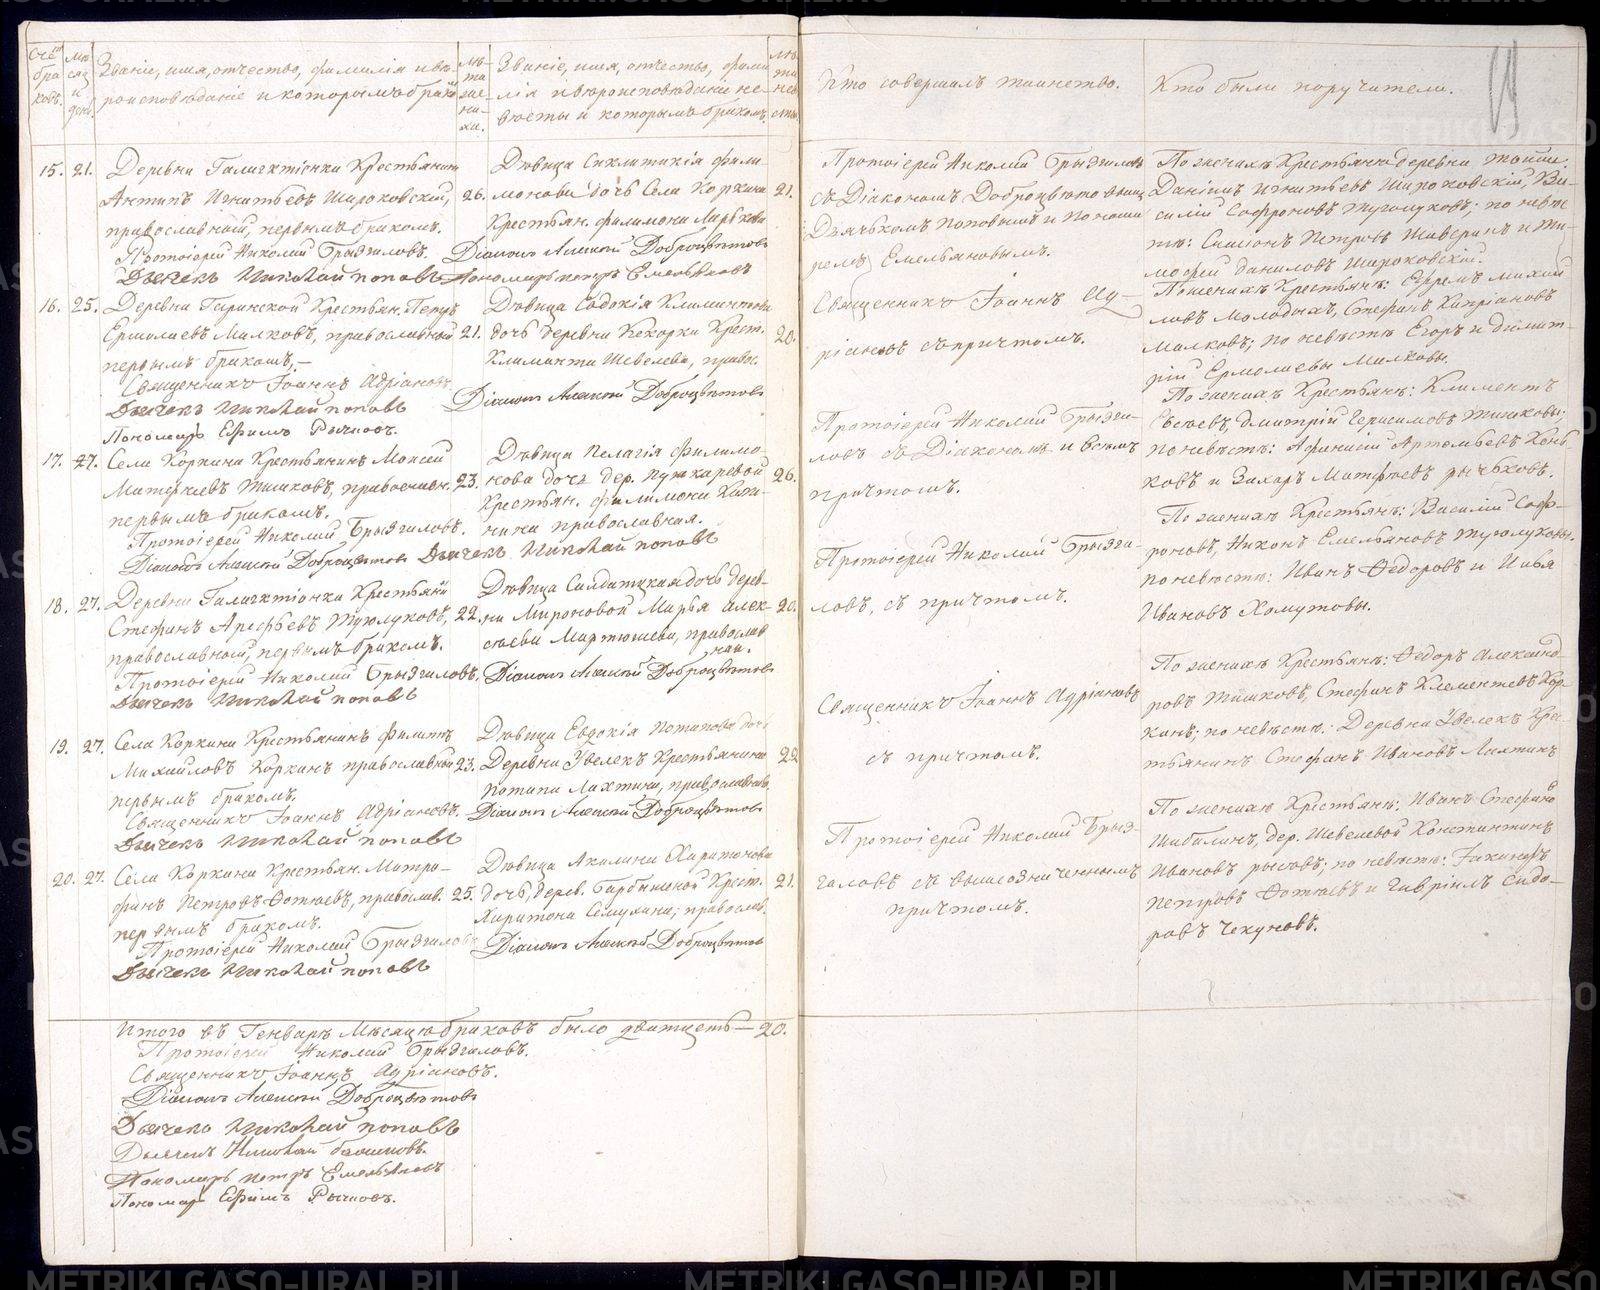 Счетъ браковъ.
Мѣсяцъ и день.
Званіе, имя, отчество, фамилія и вѣ-
роисповѣданіе и которымъ бракомъ
Лѣта жениха.
Званіе, имя, отчество, фами
лія и вѣроисповѣданіе не-
вѣсты и которымъ бракомъ.
Лѣта невѣсты
Кто совершалъ таинство.
Кто были поручители.
15. 21. Деревни Галигктіонки Крестьянинъ
Антипъ Игнатьевъ Широковскій, 26.
православный, первымъ бракомъ.
Протоіерей Николай Брызгаловъ.
Дьячекъ Николай Поповъ
Дѣвица Синклитикія Фили
монова дочь Села Коркина 21.
Крестьян. Филимона
Діаконъ Алексѣй Доброцвѣтовъ
Пономарь Петръ Емельяновъ
Протоіерей Николай Брызгаловъ
съ Діакономъ Доброцвѣтовымъ
Дьячкомъ Поповымъ и Понома
ремъ Емельяновымъ.
По женихѣ Крестьяне деревни тойже
Даніилъ Игнатьевъ Широковскій, Ва-
силій Софроновъ Туголуковъ; по невѣс
тѣ: Симеонъ Петровъ Шаверинъ и Ти-
мофей Даниловъ Широковскій.
16. 25. Деревни Таринской Крестьян. Петръ
Ермолаевъ Малковъ, православный 21.
первымъ бракомъ.
Священникъ Іоаннъ Адріановъ.
Дьячекъ Николай Поповъ
Пономарь Ефимъ Рычковъ.
Дѣвица Евдокія Климентова
дочь деревни Кекорки Крест. 20.
Климента Шевелева, правос.
Діаконъ Алексѣй Доброцвѣтовъ
Священникъ Іоаннъ Ад-
ріановъ съ причтомъ.
По женихѣ Крестьянъ: Ефремъ Михай
ловъ Молодыхъ, Стефанъ Кипріановъ
Малковъ; по невѣстѣ Егоръ и Димит-
рій Ермолаевы Малковы.
17. 27. Села Коркина Крестьянинъ Моисей
Матфіевъ Тишковъ, православн. 23.
первымъ бракомъ.
Протоіерей Николай Брызгаловъ.
Діаконъ Алексѣй Доброцвѣтовъ Дьячекъ Николай Поповъ
Дѣвица Пелагія Филимо-
нова дочь дер. Пушкаревой 26.
Крестьян. Филимона Кали-
нина православная.
Протоіерей Николай Брызга-
ловъ съ Діакономъ и всѣмъ
причтомъ.
По женихѣ Крестьянъ: Климентъ
Евсеевъ, Дмитрій Герасимовъ Тишковы;
по невѣстѣ: Афанасій Артемьевъ Конь
ковъ и Захаръ Матфѣевъ Рычковъ.
18. 27. Деревни Галигктіонки Крестьянин
Стефанъ Арефьевъ Туголуковъ, 22.
православный, первымъ бракомъ.
Протоіерей Николай Брызгаловъ.
Дьячекъ Николай Поповъ
Дѣвица Салдатская дочь дерев-
ни Мироновой Марья Алек- 20.
сѣева Мартюшева, православ
ная.
Діаконъ Алексѣй Доброцвѣтовъ
Протоіерей Николай Брызга-
ловъ, съ причтомъ.
По женихѣ Крестьянъ: Василій Соф-
роновъ, Никонъ Емельяновъ Туголуковы.
по невѣстѣ: Иванъ Ѳедоровъ и Илья
Ивановъ Хомутовы.
19. 27. Села Коркина Крестьянинъ Филиппъ
Михайловъ Коркинъ православный 23.
первымъ бракомъ.
Священникъ Іоаннъ Адріановъ.
Дьячекъ Николай Поповъ
Дѣвица Евдокія Потапова доч
Деревни Увелек Крестьянина 22
Потапа Лахтина, православная.
Діаконъ Алексѣй Доброцвѣтовъ
Священникъ Іоаннъ Адріановъ
съ причтомъ.
По женихѣ Крестьянъ: Ѳедоръ Александ-
ровъ Тишковъ, Стефанъ Клементевъ Кор-
кинъ; по невѣстѣ: Деревни Увелек Кре-
стьянинъ Стефанъ Ивановъ Лахтинъ
20. 27. Села Коркина Крестьян. Митро-
фанъ Петровъ Фотѣевъ, православ. 25.
первымъ бракомъ.
Протоіерей Николай Брызгаловъ
Дьячекъ Николай Поповъ
Дѣвица Акилина Харитонова
дочь, дерев. Барбиной Крест. 21.
Харитона Семухина; православ.
Діаконъ Алексѣй Доброцвѣтовъ
Протоіерей Николай Брыз-
галовъ съ вышеозначеннымъ
причтомъ.
По женихѣ Крестьянъ: Иванъ Стефано
Шабалинъ, дер. Шевелевой Константинъ
Ивановъ Рысовъ; по невѣстѣ: Іакинфъ
Петровъ Фотѣевъ и Гавріилъ Сидо-
ровъ Чекуновъ.
Итого въ Генварѣ Мѣсяцѣ браковъ было двадцать — 20.
Протоіерей Николай Брызгаловъ.
Священникъ Іоаннъ Адріановъ.
Діаконъ Алексѣй Доброцвѣтовъ
Дьячекъ Николай Поповъ
Дьячекъ Николай
Пономарь Петръ Емельяновъ
Пономарь Ефимъ Рычковъ.
METRIKI.GASO-URAL.RU
METRIKI.GASO-URAL.RU